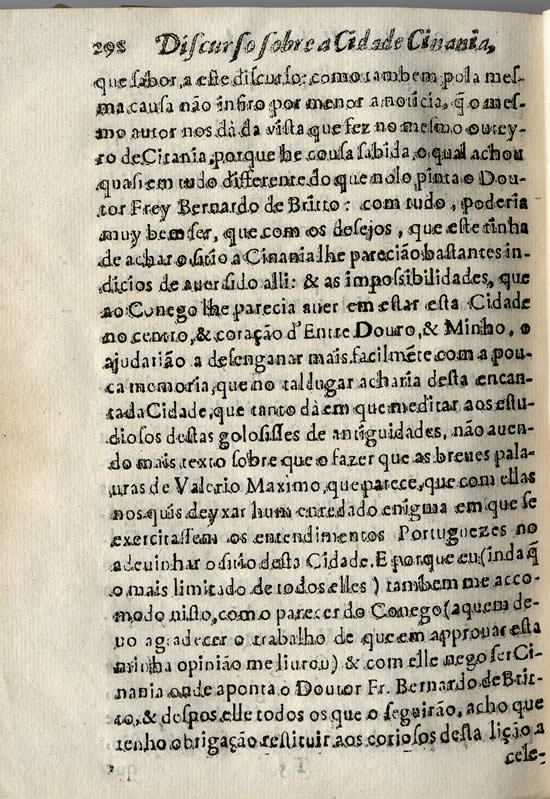 298 Discurso sobre a Cidade Cinania,
que sabor, a este discurso: como tambem pola mes-
ma causa não infiro por menor a noticia, q̃ o mes-
mo autor nos dà da vista que fez no mesmo outey-
ro de Citania, porque he cousa sabida, o qual achou
quasi em tudo differente do que nolo pinta o Dou-
tor Frey Bernardo de Britto: com tudo, poderia
muy bem ser, que com os desejos, que este tinha
de achar o sitio a Cinania lhe parecião bastantes in-
dicios de auer sido alli: & as impossibilidades, que
ao Conego lhe parecia auer em estar esta Cidade
no centro, & coração d'Entre Douro, & Minho, o
ajudarião a desenganar mais facilmẽte com a pou-
ca memoria, que no tal lugar acharia desta encan-
tada Cidade, que tanto dà em que meditar aos estu-
diosos destas golosisses de antiguidades, não auen-
do mais texto sobre que o fazer que as breues pala-
uras de Valerio Maximo, que parece, que com ellas
nos quis deyxar hum enredado enigma em que se
exercitassem os entendimentos Portuguezes no
adeuinhar o sitio desta Cidade. E porque eu (inda q̃
o mais limitado de todos elles) tambem me acco-
modo nisto, com o parecer do Conego (a quem de-
uo agradecer o trabalho de que em approuar esta
minha opinião me liurou) & com elle nego ser Ci-
nania onde aponta o Doutor Fr. Bernardo de Brit-
to, & despos elle todos os que o seguirão, acho que
tenho obrigação restituir aos coriosos desta lição a
cele-